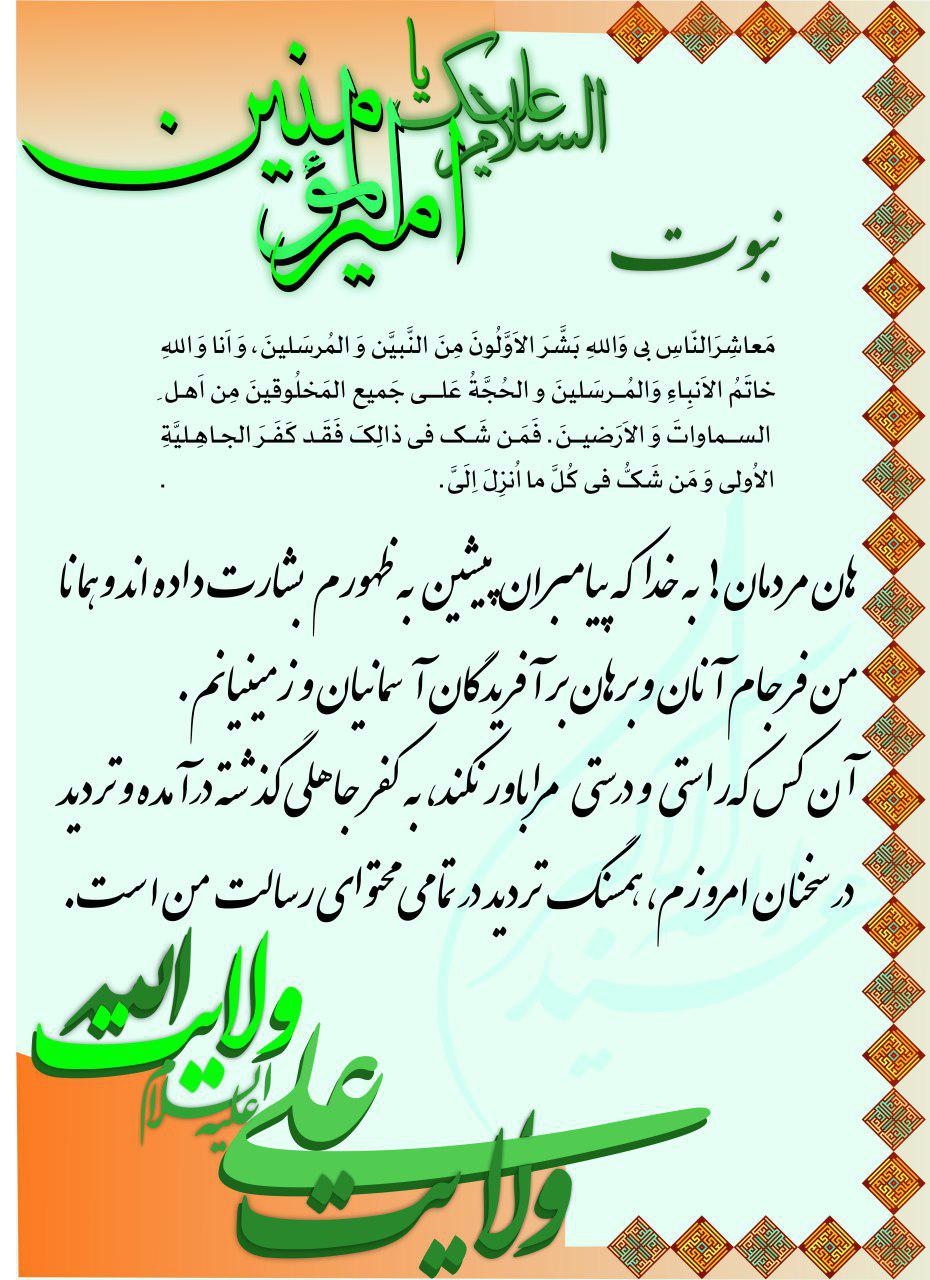 السلام علیک یا
امیرالمؤمنین
نبوت
مَعاشِرَالنّاسِ بی وَاللهِ بَشَّرَ الاَوَّلُونَ مِنَ النَّبیَّن وَ المُرسَلینَ، وَ اَنا وَ اللهِ
خاتَمُ الاَنبِاءِ وَالمُـرسَلینَ و الحُجَّةُ عَلــی جَمیع المَخلُوقینَ مِن اَهـلِ
السـماواتَ وَ الاَرَضیـنَ. فَمَـن شَـک فی ذالِکَ فَقَـد کَفَـرَ الجـاهِـلیَّةِ
الاُولی وَ مَن شَکُّ فی کُلَّ ما اُنزِلَ اِلَیَّ. .
هان مردمان! به خدا که پیامبران پیشین به ظهورم بشارت داده اند و همانا
من فرجام آنان و برهان بر آفریدگان آسمانیان و زمینیانم.
آن کس که راستی و درستی مرا باور نکند، به کفر جاهلی گذشته درآمده و تردید
در سخنان امروزم، همسنگ تردید در تمامی محتوای رسالت من است.
ولایت الله
ولایت علی علیه السلام